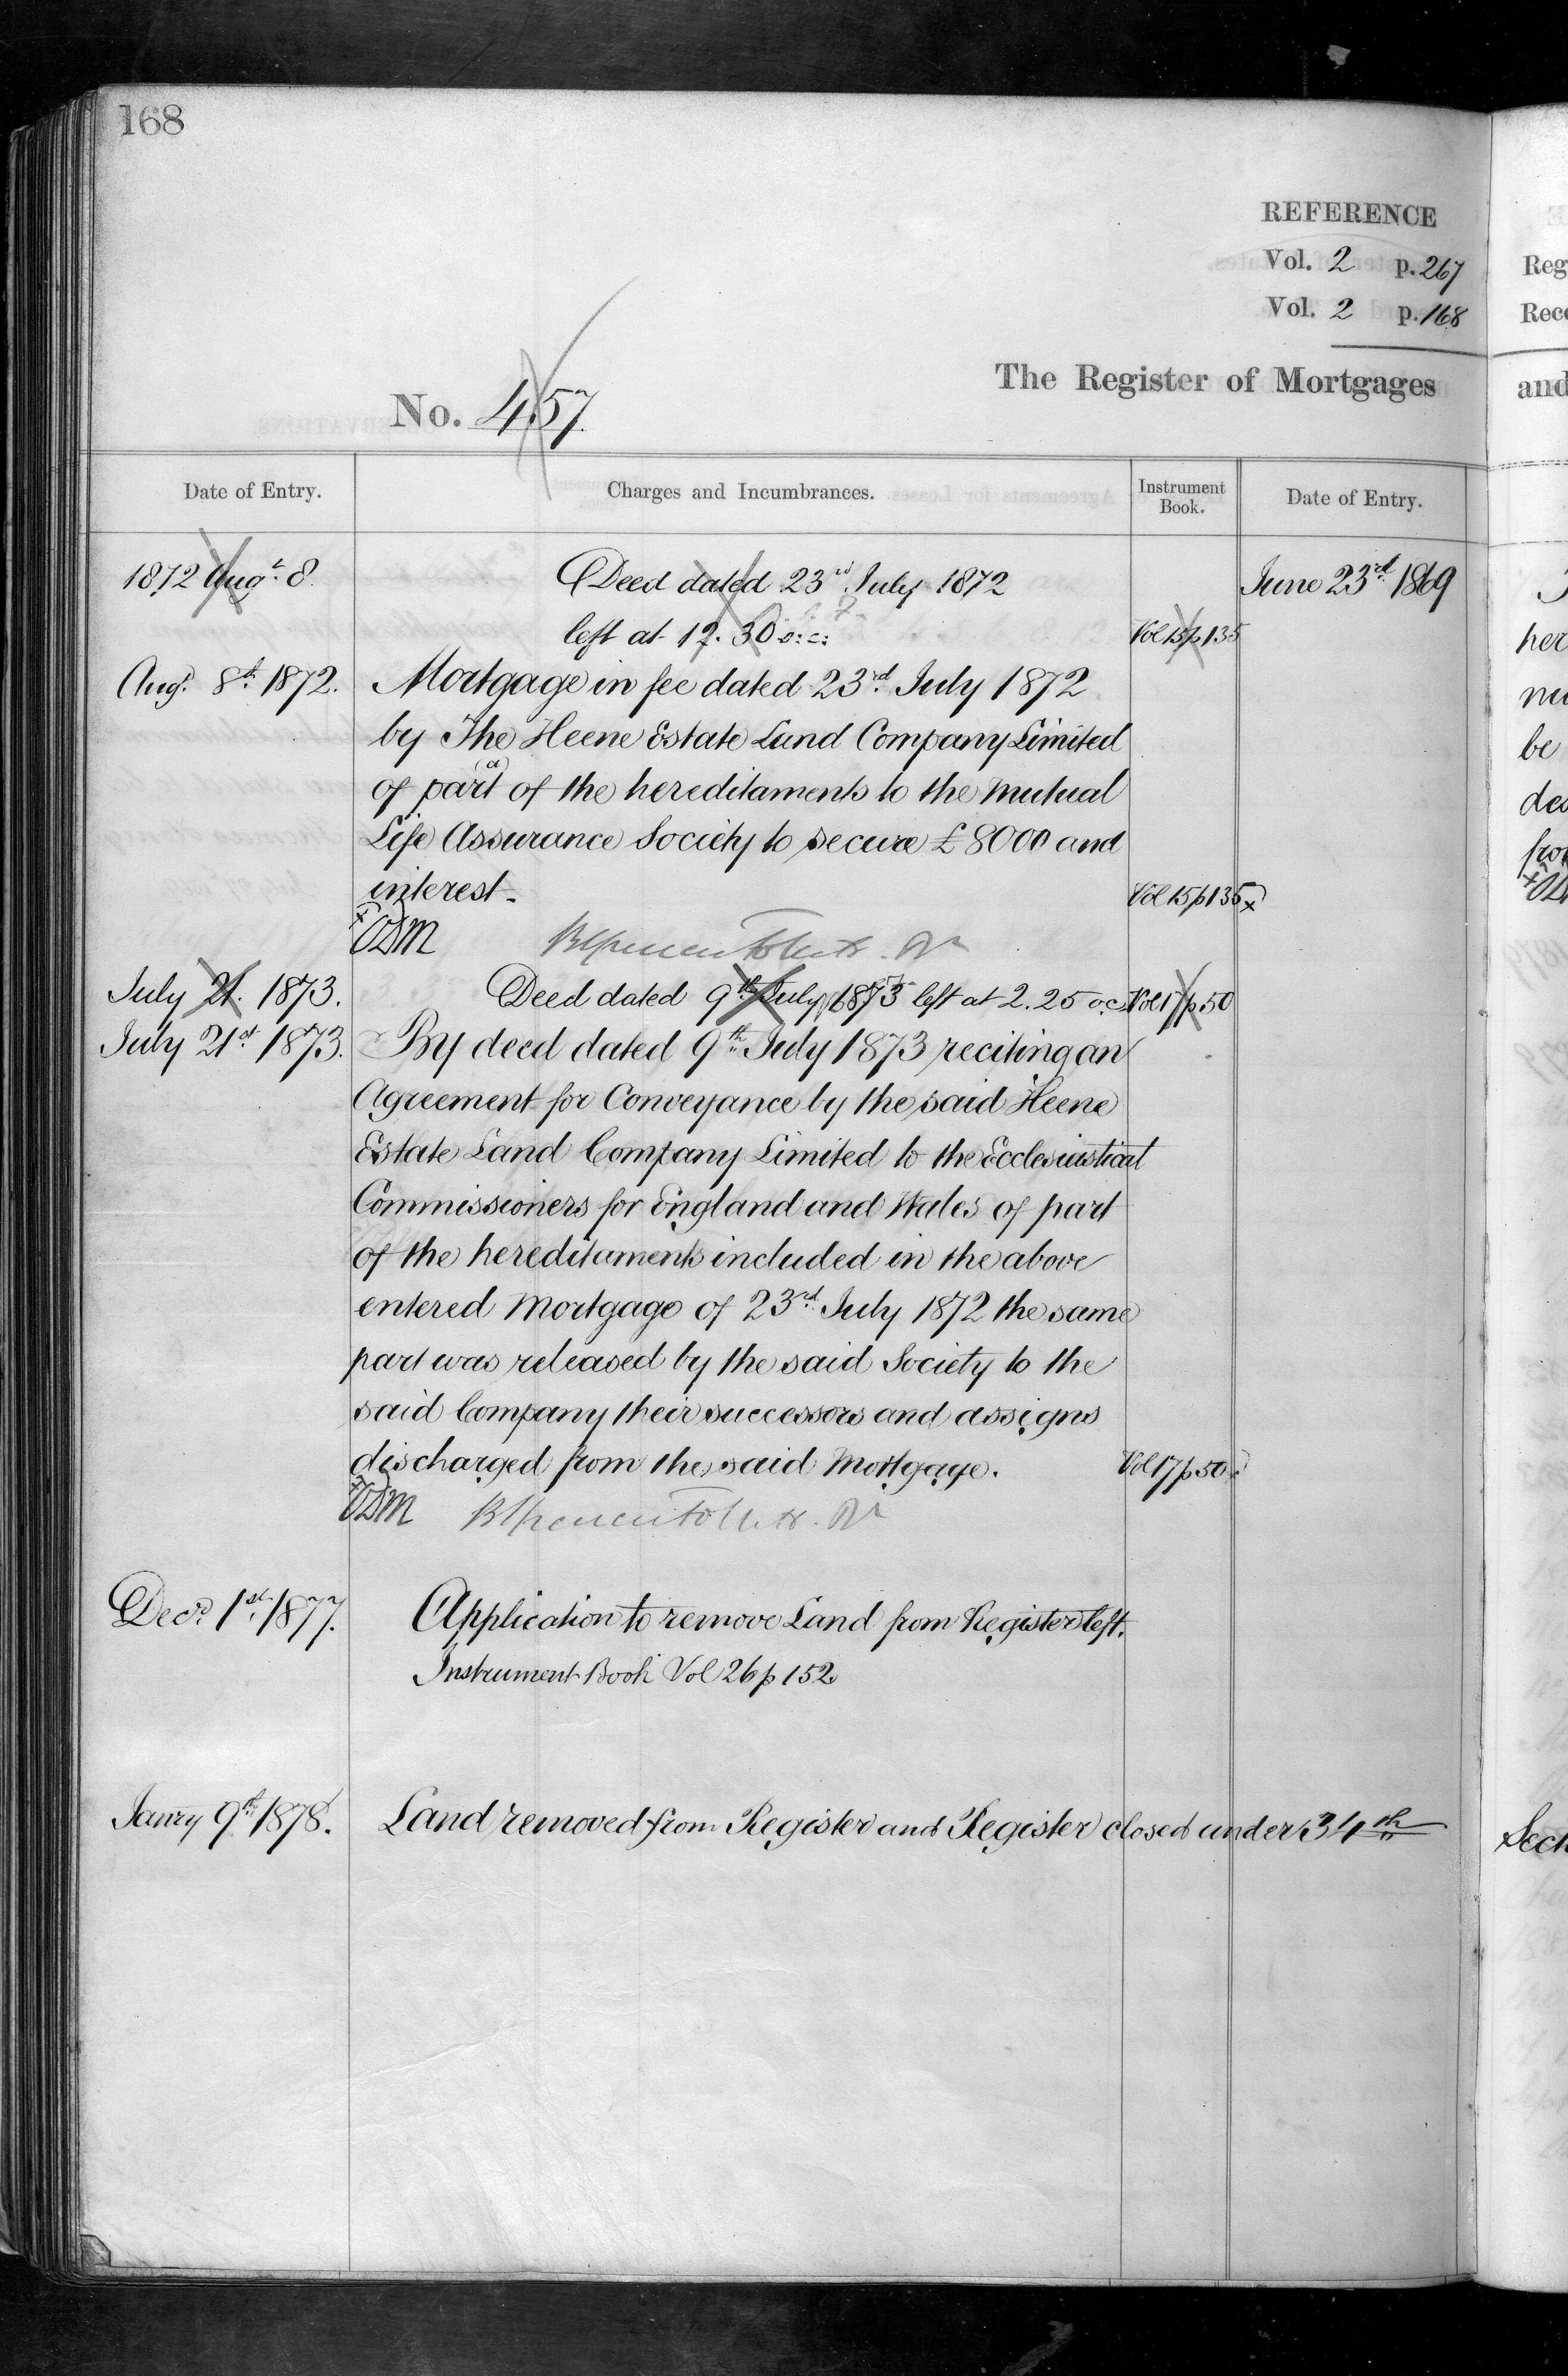 168
REFERENCE
Vol. 2 p. 267
Vol. 2 p. 168
The Register of Mortgages
No. 457
Date of Entry. Charges and Incumbrances. Instrument Book. Date of Entry.
1872 Augt. 8. Deed dated 23rd July 1872 June 23rd 1869
left at 12.30 o.c: Vol 15 p 135
Augt. 8th 1872. Mortgage in fee dated 23rd July 1872
by The Heene Estate Land Company Limited
of part (a) of the hereditaments to the Mutual
Life Assurance Society to secure £8000 and
interest. Vol 15 p 135 x
July 21. 1873. Deed dated 9th July 1873 left at 2.25 o.c. Vol 17 p 50
July 21st 1873. By deed dated 9th July 1873 reciting an
Agreement for Conveyance by the said Heene
Estate Land Company Limited to the Ecclesiastical
Commissioners for England and Wales of part
of the hereditaments included in the above
entered Mortgage of 23rd July 1872 the same
part was released by the said Society to the
said Company their successors and assigns
discharged from the said Mortgage. Vol 17 p 50
Decr. 1st 1877. Application to remove Land from Register left.
Instrument Book Vol 26 p 152
Janry 9th 1878. Land removed from Register and Register closed under 34th